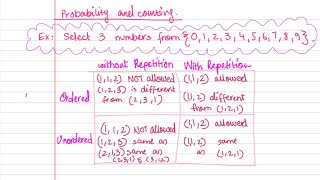 Probability and counting.
Ex: Select 3 numbers from {0,1,2,3,4,5,6,7,8,9}.
without Repetition With Repetition
Ordered
(1,1,2) NOT allowed
(1,2,3) is different
from (2,3,1)
(1,1,2) allowed
(1,1,2) different
from (1,2,1)
Unordered
(1,1,2) Not allowed
(1,2,3) same as
(2,1,3) same as
(2,3,1) & (3,1,2)
(1,1,2) allowed
(1,1,2) same
as (1,2,1)